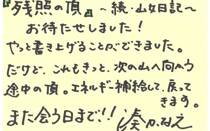 『残照の頂』～続・山女日記～
お待たせしました!
やっと書き上げることができました。
だけど、これもきっと、次の山へ向かう
途中の頂。エネルギー補給して、戻って
きます。
また会う日まで!! 湊かなえ